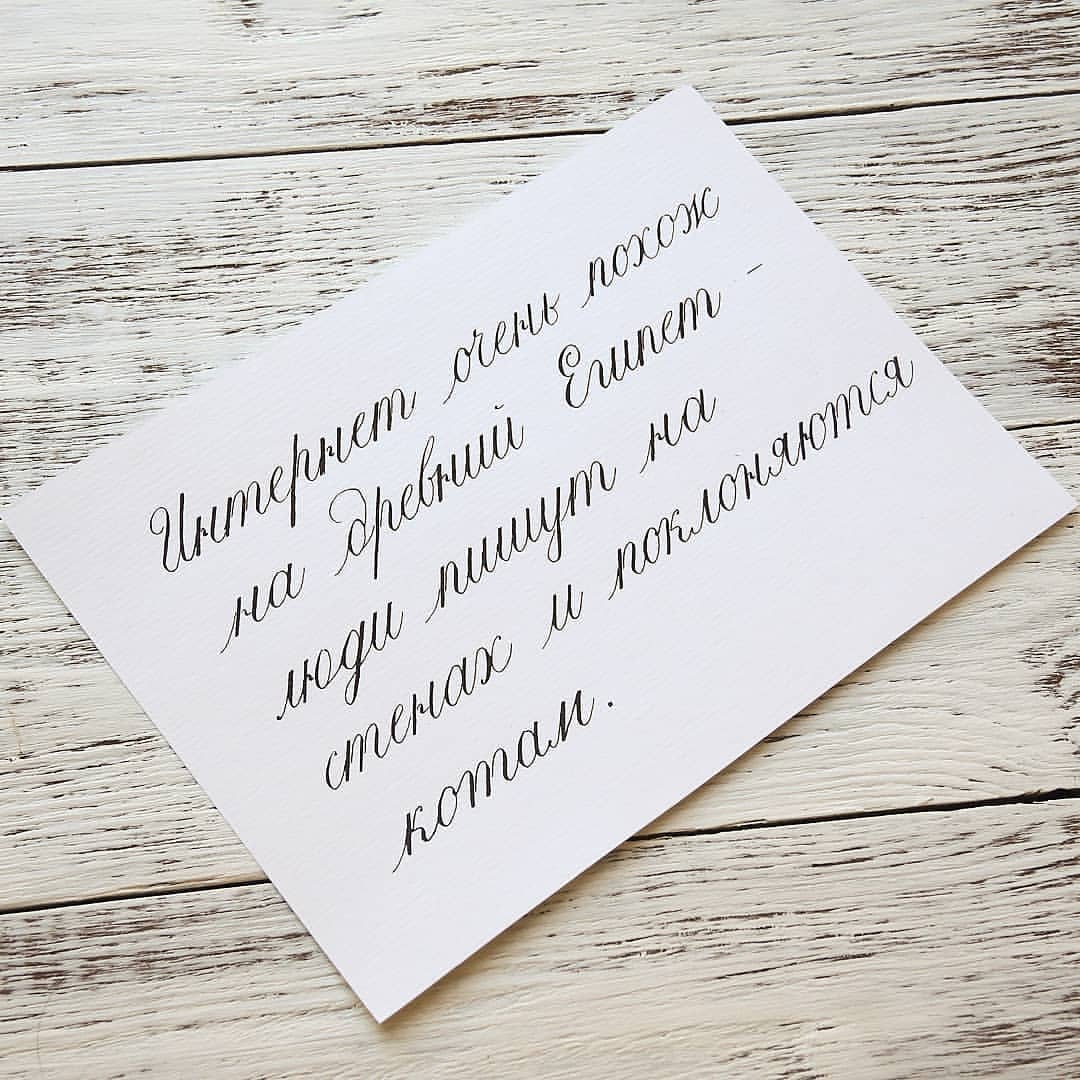 Интернет очень похож
на древний Египет –
люди пишут на
стенах и поклоняются
котам.